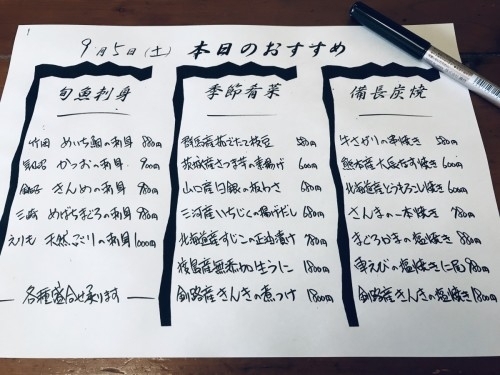 9月5日(土) 本日のおすすめ
旬魚刺身
竹岡 めいち鯛の刺身 880円
かつおの刺身 900円
銚子 きんめの刺身 980円
三崎 めばちまぐろの刺身 980円
えりも 天然ぶりの刺身 1000円
各種盛合せ承ります
季節肴菜
群馬産茹でたて枝豆 580円
茨城産さつま芋の素揚げ 600円
山口産白銀の板わさ 680円
三河産いちじくの揚げだし 680円
北海道産すじこの正油漬け 780円
産無添加生うに 1800円
釧路産きんきの煮つけ 1800円
備長炭焼
牛さがりの串焼き 580円
熊本産大長なす焼き 600円
北海道産とうもろこし焼き 600円
さんまの一本焼き 780円
まぐろカマの塩焼き 880円
車えびの塩焼き二尾 980円
釧路産きんきの塩焼き 1800円